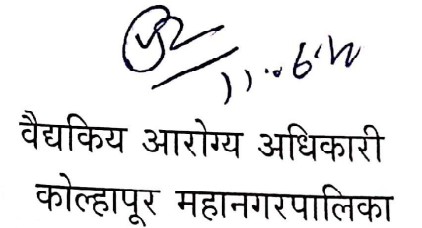 वैद्यकिय आरोग्य अधिकारी
कोल्हापूर महानगरपालिका